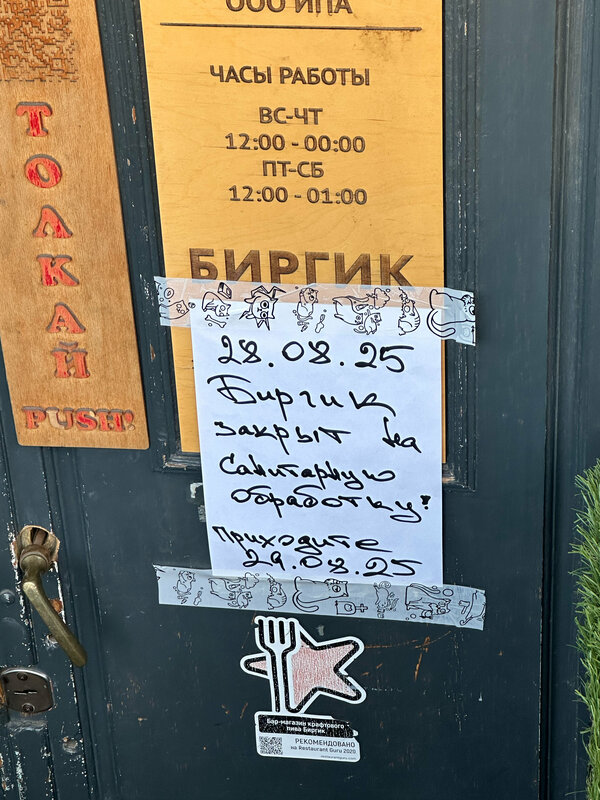 ООО ИПА
ЧАСЫ РАБОТЫ
ВС-ЧТ
12:00 - 00:00
ПТ-СБ
12:00 - 01:00
БИРГИК
ТОЛКАЙ
PUSH!
28.08.25
Биргик
закрыт на
санитарную
обработку!
Приходите
29.08.25
Бар-магазин крафтового
пива Биргик
РЕКОМЕНДОВАНО
на Restaurant Guru 2020
restaurantguru.com